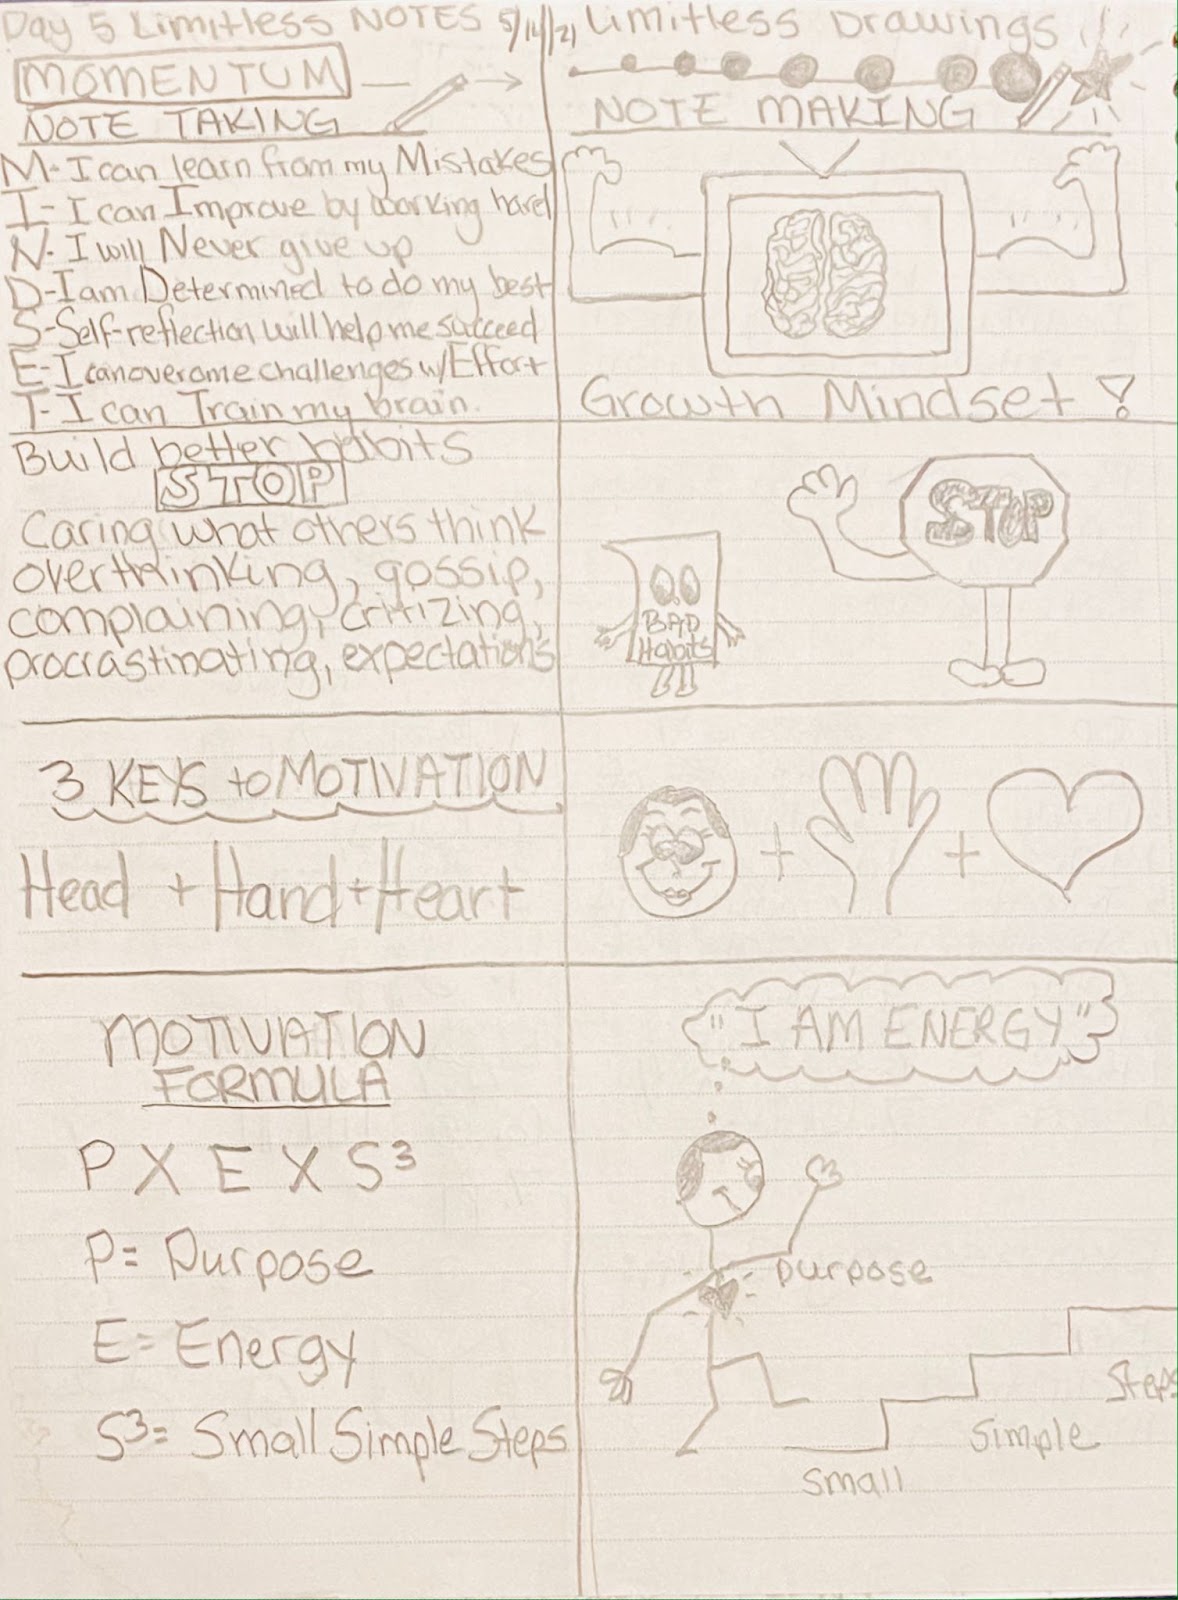 Day 5 Limitless NOTES 5/14/21 Limitless Drawings
MOMENTUM
NOTE TAKING
M- I can learn from my Mistakes
I- I can Improve by working hard
N- I will Never give up
D- I am Determined to do my best
S- Self-reflection will help me succeed
E- I can overcome challenges w/ Effort
T- I can Train my brain.
NOTE MAKING
Growth Mindset!
Build better habits
STOP
Caring what others think
overthinking, gossip,
complaining, critizing,
procrastinating, expectations
STOP
BAD
Habits
3 KEYS to MOTIVATION
Head + Hand + Heart
+ +
MOTIVATION
FORMULA
P X E X S³
P= Purpose
E= Energy
S³= Small Simple Steps
"I AM ENERGY"
purpose
Steps
Simple
Small